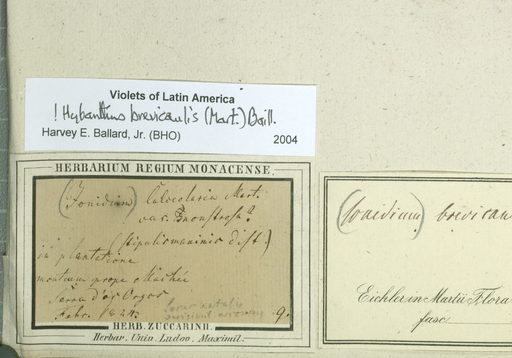 Violets of Latin America
! Hybanthus brevicaulis (Mart.) Baill.
Harvey E. Ballard, Jr. (BHO)
2004
HERBARIUM REGIUM MONACENSE.
(Ionidium) Calceolaria Mart.
var. monstrosa?
(stipulis maximis dist.)
in plantatione
montium prope Mache
Serra d'os Orgos
Febr. 1824.
HERB. ZUCCARINII.
Herbar. Univ. Ludov. Maximil.
(Ionidium) brevicau
Eichler in Martii Flora
fasc.